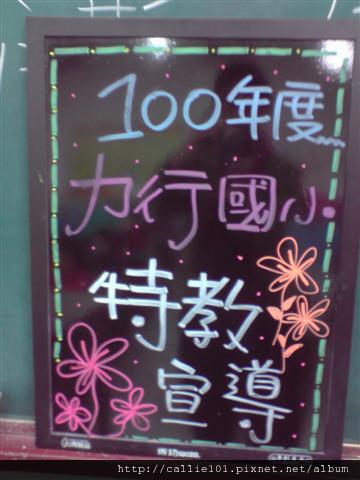 100年度
力行國小
特教
宣導
http://callie101.pixnet.net/album